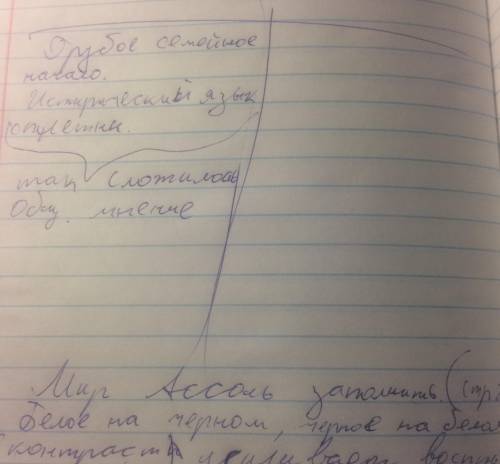 Грубое семейное
начало.
Истерический язык
сплетни.
так сложилось
Общ. мнение
Мир Ассоль заполнить (стр.
Белое на черном, черное на белом
контраст усиливает воспр